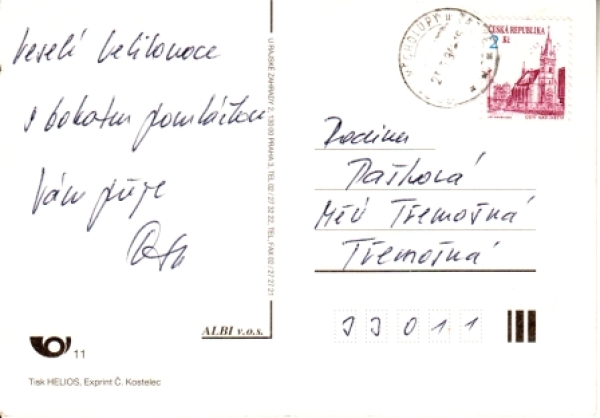 Veselé Velikonoce
s bohatou pomlázkou
Vám přeje
U RAJSKÉ ZAHRADY 2, 130 00 PRAHA 3, TEL. 02 / 27 32 22, TEL. FAX 02 / 27 27 21
ALBI v.o.s.
11
Tisk HELIOS, Exprint Č. Kostelec
ČESKÁ REPUBLIKA
2 Kč
Rodina
Pašková
MěÚ Třemošná
Třemošná
33011